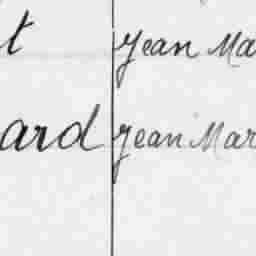 t Jean Ma
ard Jean Mar